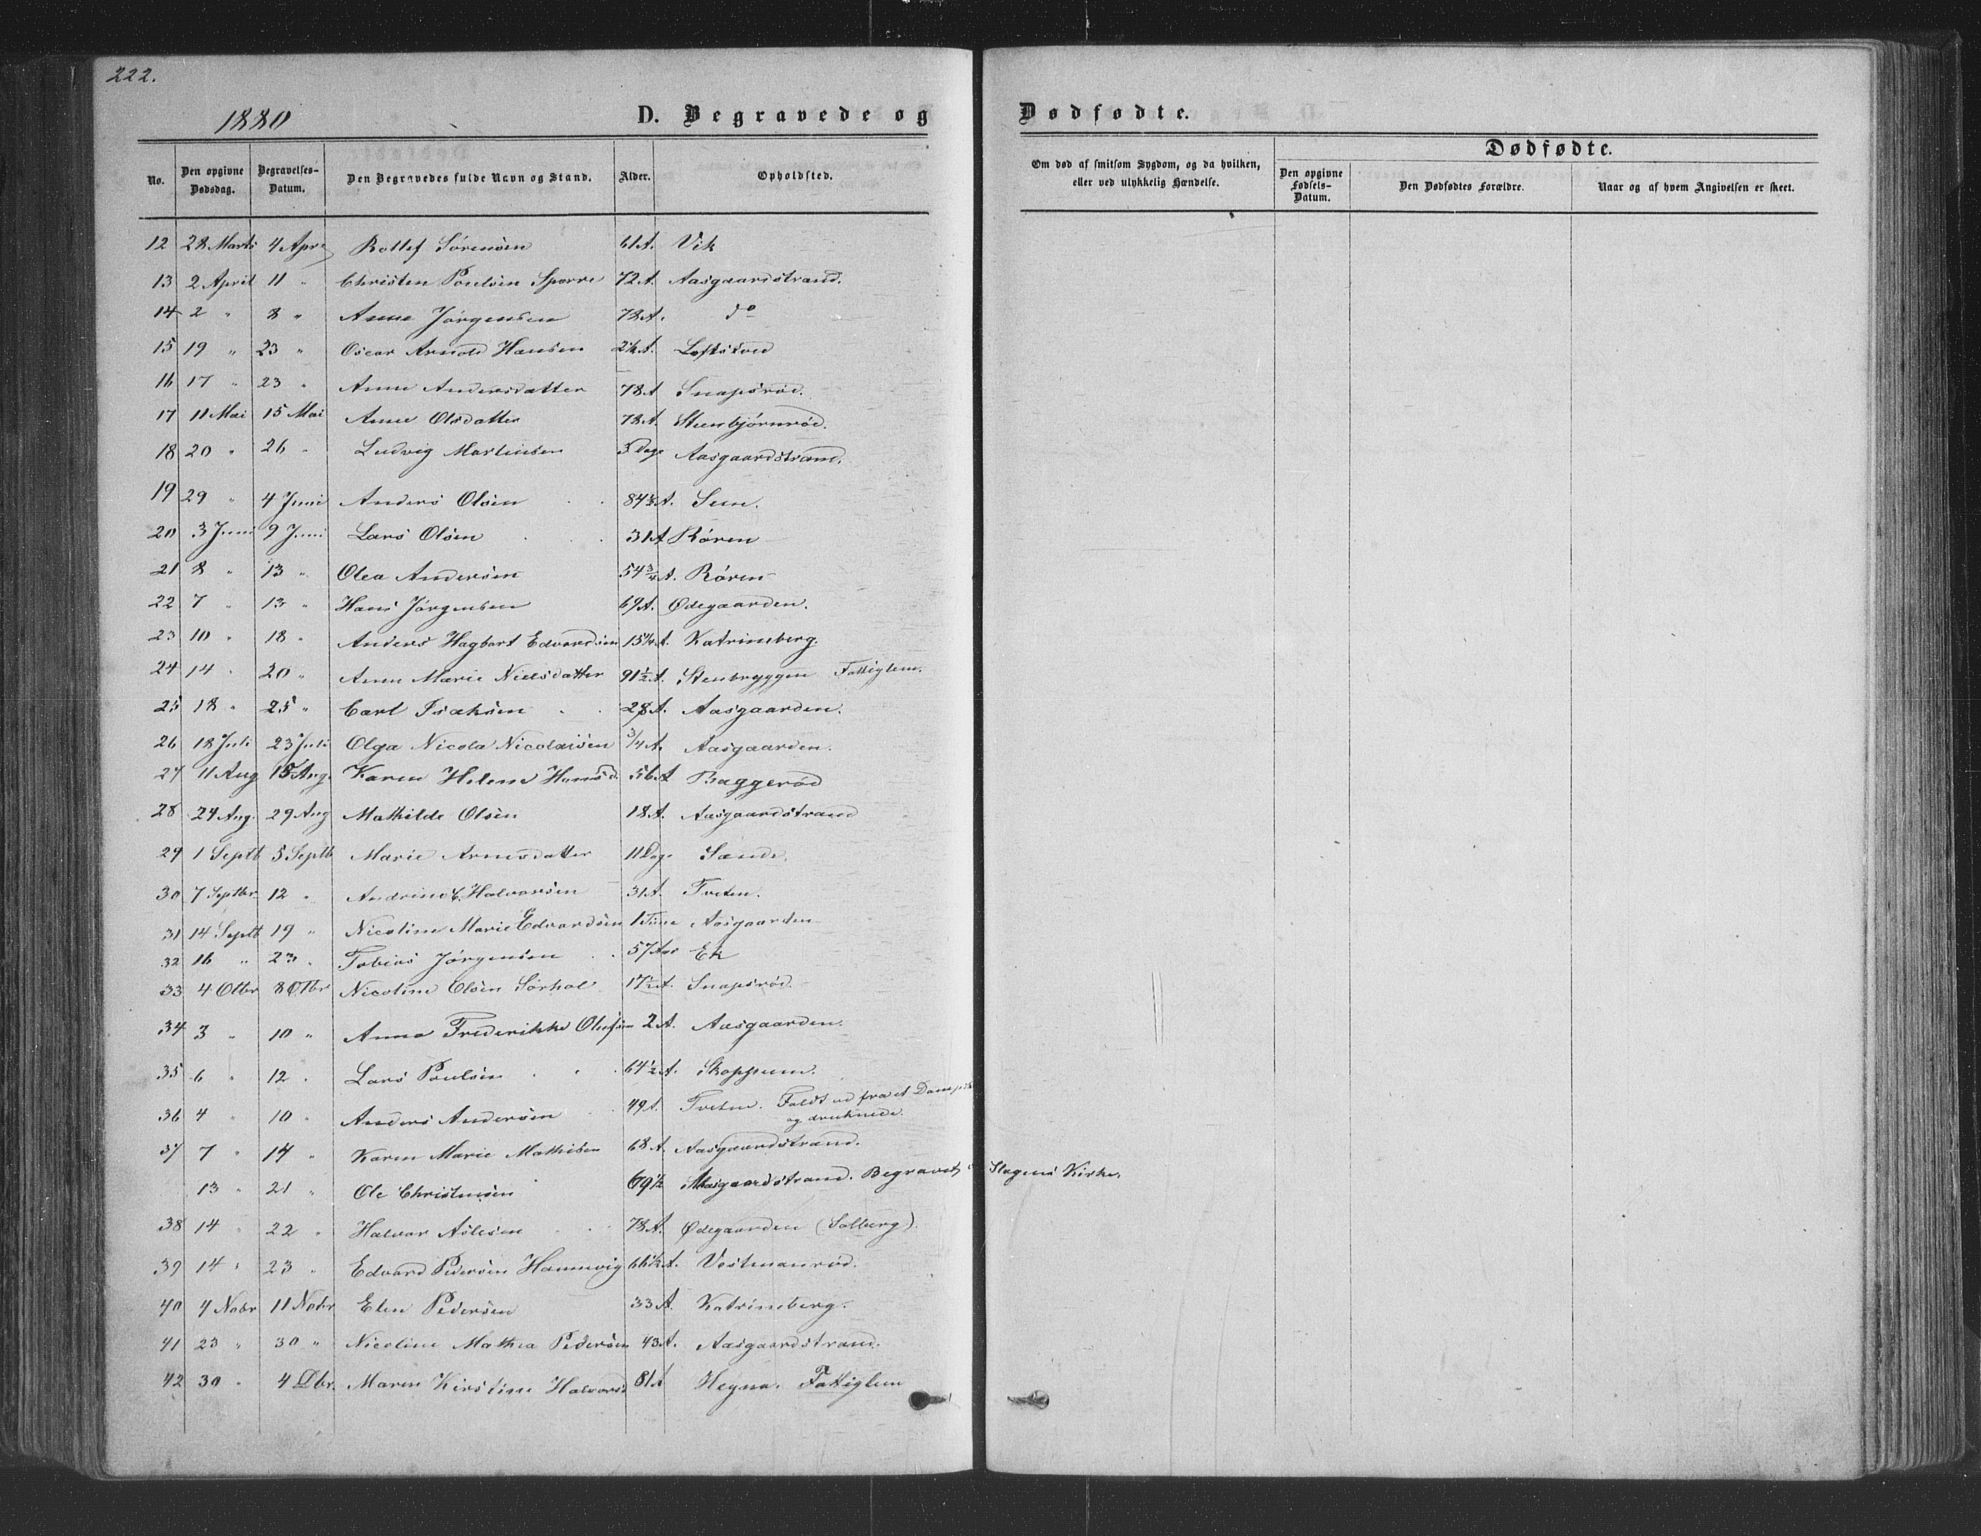 222.
1880
D. Begravede og Dødfødte.
No. Den opgivne Dødsdag. Begravelses-Datum. Den Begravedes fulde Navn og Stand. Alder. Opholdsted.
Om død af smitsom Sygdom, og da hvilken, eller ved ulykkelig Hændelse.
Dødfødte.
Den opgivne Fødsels-Datum. Den Dødfødtes Forældre. Naar og af hvem Angivelsen er skeet.
12 28 Marts 4 Apr Rollef Sørensen 61 A. Vik
13 2 April 11 " Christen Poulsen Sporre 72 A. Aasgaardstrand.
14 2 " 8 " Anne Jørgensen 78 A. do
15 19 " 23 " Oscar Arnold Hansen A. Loftstved
16 17 " 23 " Anne Andersdatter 78 A Snapsrød.
17 11 Mai 15 Mai Anne Olsdatter 78 A. Steenbjørnrød.
18 20 " 26 " Ludvig Martinsen 5 Dage Aasgaardstrand.
19 29 " 4 Juni Anders Olsen 84½ A. Sem.
20 3 Juni 9 Juni Lars Olsen 31 A Røren
21 8 " 13 " Olea Andersen 54¾ A. Røren
22 7 " 13 " Hans Jørgensen 69 A. Ødegaarden.
23 10 " 18 " Anders Hagbart Edvardsen 15¼ A. Katrineberg.
24 14 " 20 " Anne Marie Nielsdatter 91½ A. Stenbryggen Fattiglem.
25 18 " 25 " Carl Isaksen 28 A. Aasgaarden.
26 18 Juli 23 Juli Olga Nicola Nicolaisen ¾ A Aasgaarden.
27 11 Aug 15 Aug. Karen Helene Hansd. 56 A Baggerød
28 24 Aug. 29 Aug Mathilde Olsen 18 A. Aasgaardstrand
29 1 Septb 5 Septb Marie Arnesdatter 11 Dage Sande.
30 7 Septbr 12 " Halvorsen 31 A. Tveten.
31 14 Septb 19 " Nicoline Marie Edvardsen 1 Time Aasgaarden
32 16 " 23 " Tobias Jørgensen 57 Aar Ek
33 4 Otbr 8 Otbr Nicoline Olsen Sørhol 17½ A. Snapsrød.
34 3 " 10 " Anna Frederikke Olufsen 2 A. Aasgaarden.
35 6 " 12 " Lars Poulsen 64½ A. Skoppum.
36 4 " 10 " Anders Andersen 49 A. Tveten. Faldt ud fra et Dampsk
og druknede.
37 7 " 14 " Karen Marie Mathisen 68 A Aasgaardstrand.
13 " 21 " Ole Christensen 69½ Aasgaardstrand. Begravet i Slagens Kirke.
38 14 " 22 " Halvor Aslesen 78 A. Ødegaarden (Solberg).
39 14 " 23 " Edvard Pedersen Hannevig 66½ A. Vestmanrød.
40 4 Nobr 11 Nobr Elen Pedersen 33 A. Katrineberg.
41 23 " 30 " Nicoline Mathea Pedersen 43 A. Aasgaardstrand.
42 30 " 4 Dbr. Maren Kirstine Halvorsd 81 A Hegna. Fattiglem